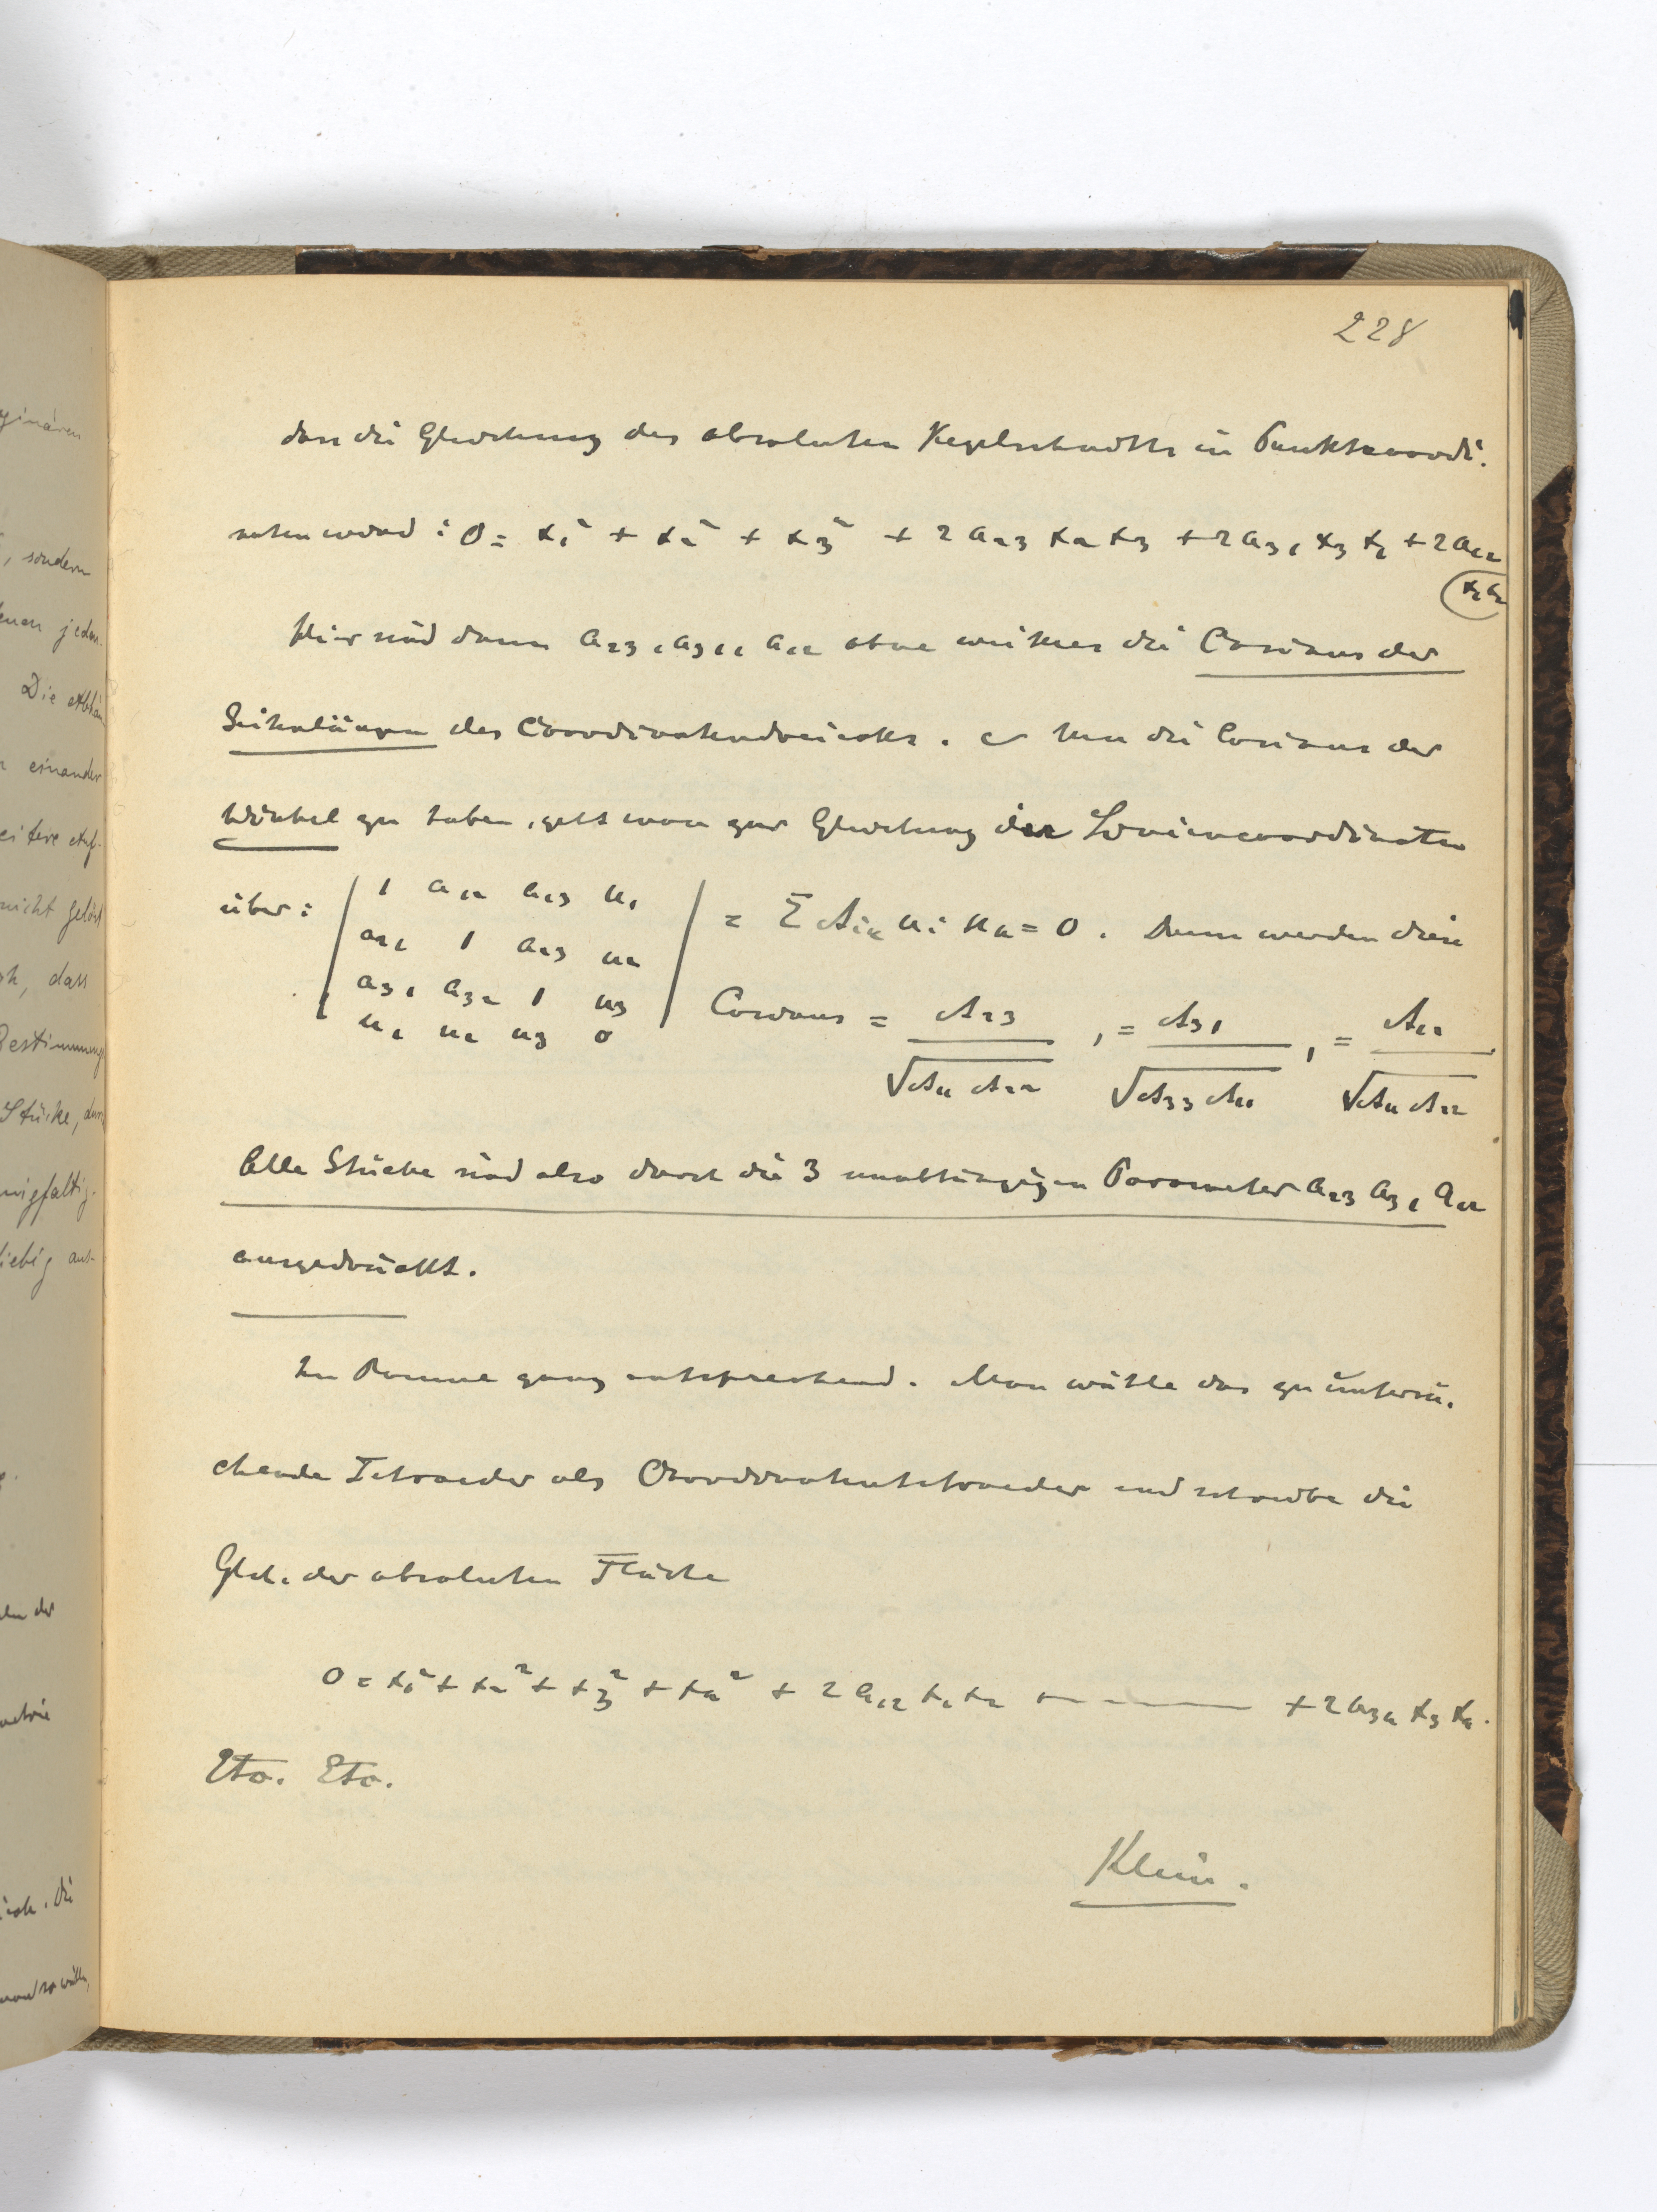 228
dass die Gleichung des absoluten Kegelschnitts in Punktcoordi-
naten wird: 0 = x₁² + x₂² + x₃² + 2a₂₃ x₂ x₃ + 2a₃₁ x₃ x₁ + 2a₁₂
x₁x₂
Hier sind dann a₂₃, a₃₁, a₁₂ ohne weiteres die Cosinus der
Seitenlängen des Coordinatendreiecks. Um die Cosinus der
Winkel zu haben, geht man zur Gleichung in Liniencoordinaten
über: | 1 a₁₂ a₁₃ u₁ | = Σ Aᵢₖ uᵢ uₖ = 0. Dann werden diese
a₂₁ 1 a₂₃ u₂
a₃₁ a₃₂ 1 u₃
u₁ u₂ u₃ 0
Cosinus = A₂₃ / √A₁₁ A₂₂, = A₃₁ / √A₃₃ A₁₁, = A₁₂ / √A₁₁ A₂₂
Alle Stücke sind also durch die 3 unabhängigen Parameter a₂₃ a₃₁ a₁₂
ausgedrückt.
Im Raume ganz entsprechend. Man wähle das zu untersu-
chende Tetraeder als Coordinatentetraeder und schreibe die
Glch. der absoluten Fläche
0 = x₁² + x₂² + x₃² + x₄² + 2a₁₂ x₁ x₂ + — — — + 2a₃₄ x₃ x₄.
Etc. Etc.
Klein.
ginären
, sondern
enen jedes
Die Abhän
einander
eitere Auf-
nicht gelöst
, dass
Bestimmung
Stücke, 
nigfaltig-
liebig aus-
der
metrie
die